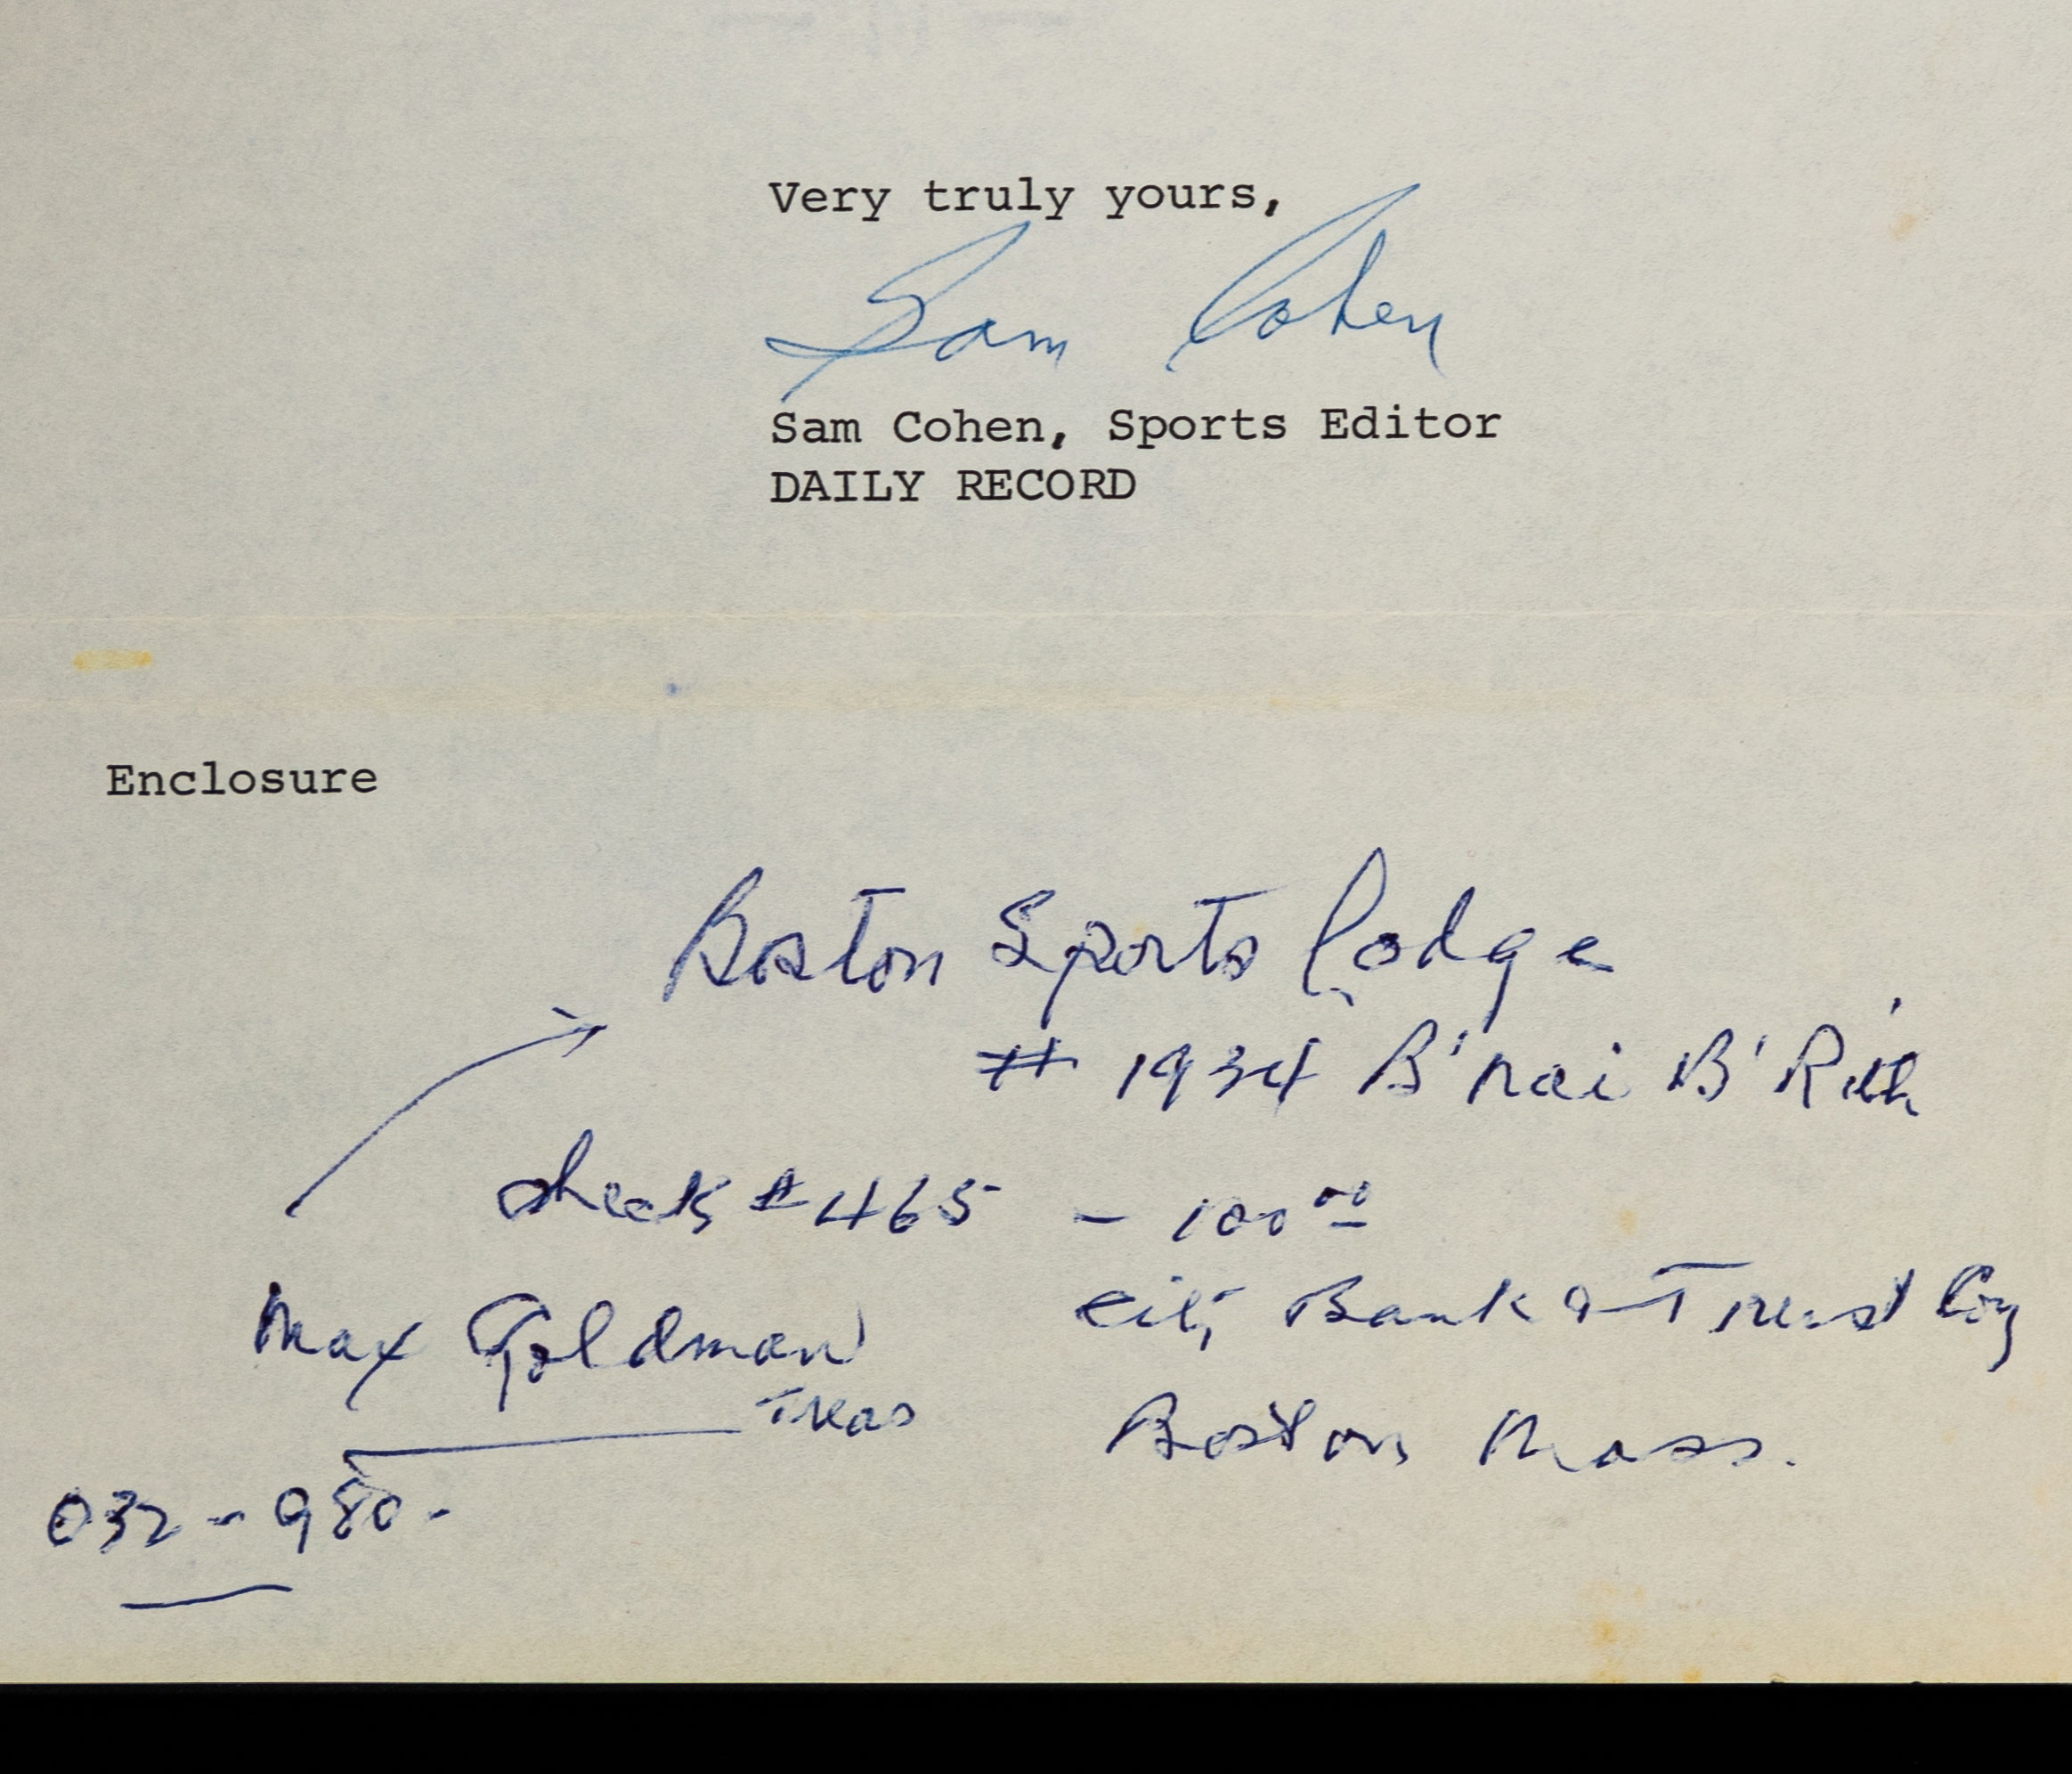 Very truly yours,
Sam Cohen
Sam Cohen, Sports Editor
DAILY RECORD
Enclosure
Boston Sports Lodge
# 1934 B'nai B'Rith
check # 465 - 100 00
Max Goldman
Treas
City Bank & Trust Coy
Boston Mass.
032 - 980 -